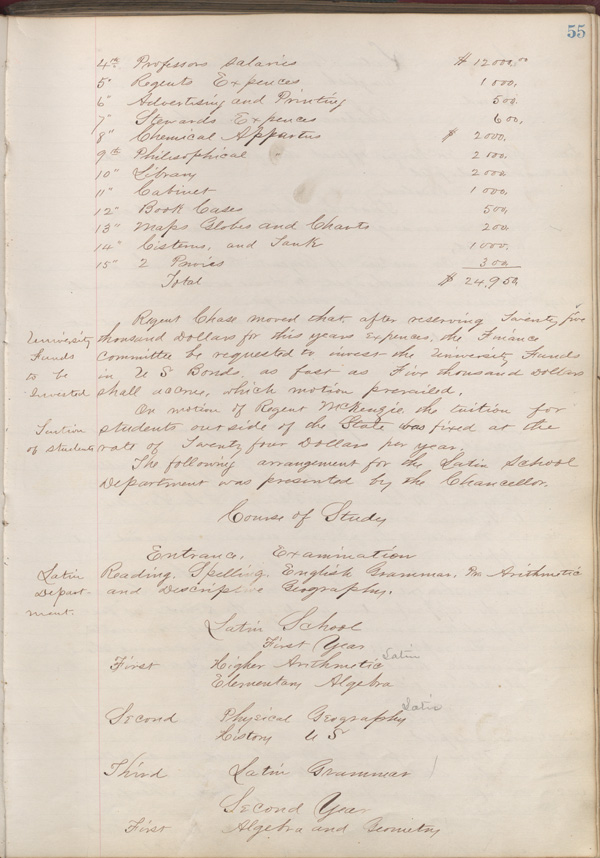 55
4th Professors Salaries $ 12000.00
5" Regents Expences 1000.
6" Advertising and Printing 500
7" Stewards Expences 600.
8" Chemical Appartus $ 2000.
9th Philosophical 2000.
10" Library 2000
11" Cabinet 1000.
12" Book Cases 500,
13" Maps Globes and Charts 200
14" Cisterns, and Tank 1000.
15" 2 Privies 300
Total $ 24.950
Regent Chase moved that, after reserving Twenty five
University thousand Dollars for this years Expences, the Finance
Funds Committee be requested to invest the University Funds
to be in U S Bonds, as fast as Five thousand Dollars
Invested shall accrue, which motion prevailed.
On motion of Regent McKenzie the tuition for
Tuition students outside of the State was fixed at the
of students rate of Twenty four Dollars per year.
The following arrangement for the Latin School
Department was presented by the Chancellor.
Course of Study
Entrance, Examination
Latin Reading, Spelling, English Grammar, Arithmetic
Depart- and Descriptive Geography.
ment.
Latin School
First Year
First Higher Arithmetic Latin
Elementary Algebra
Second Physical Geography Latin
History U S
Third Latin Grammar
Second Year
First Algebra and Geometry